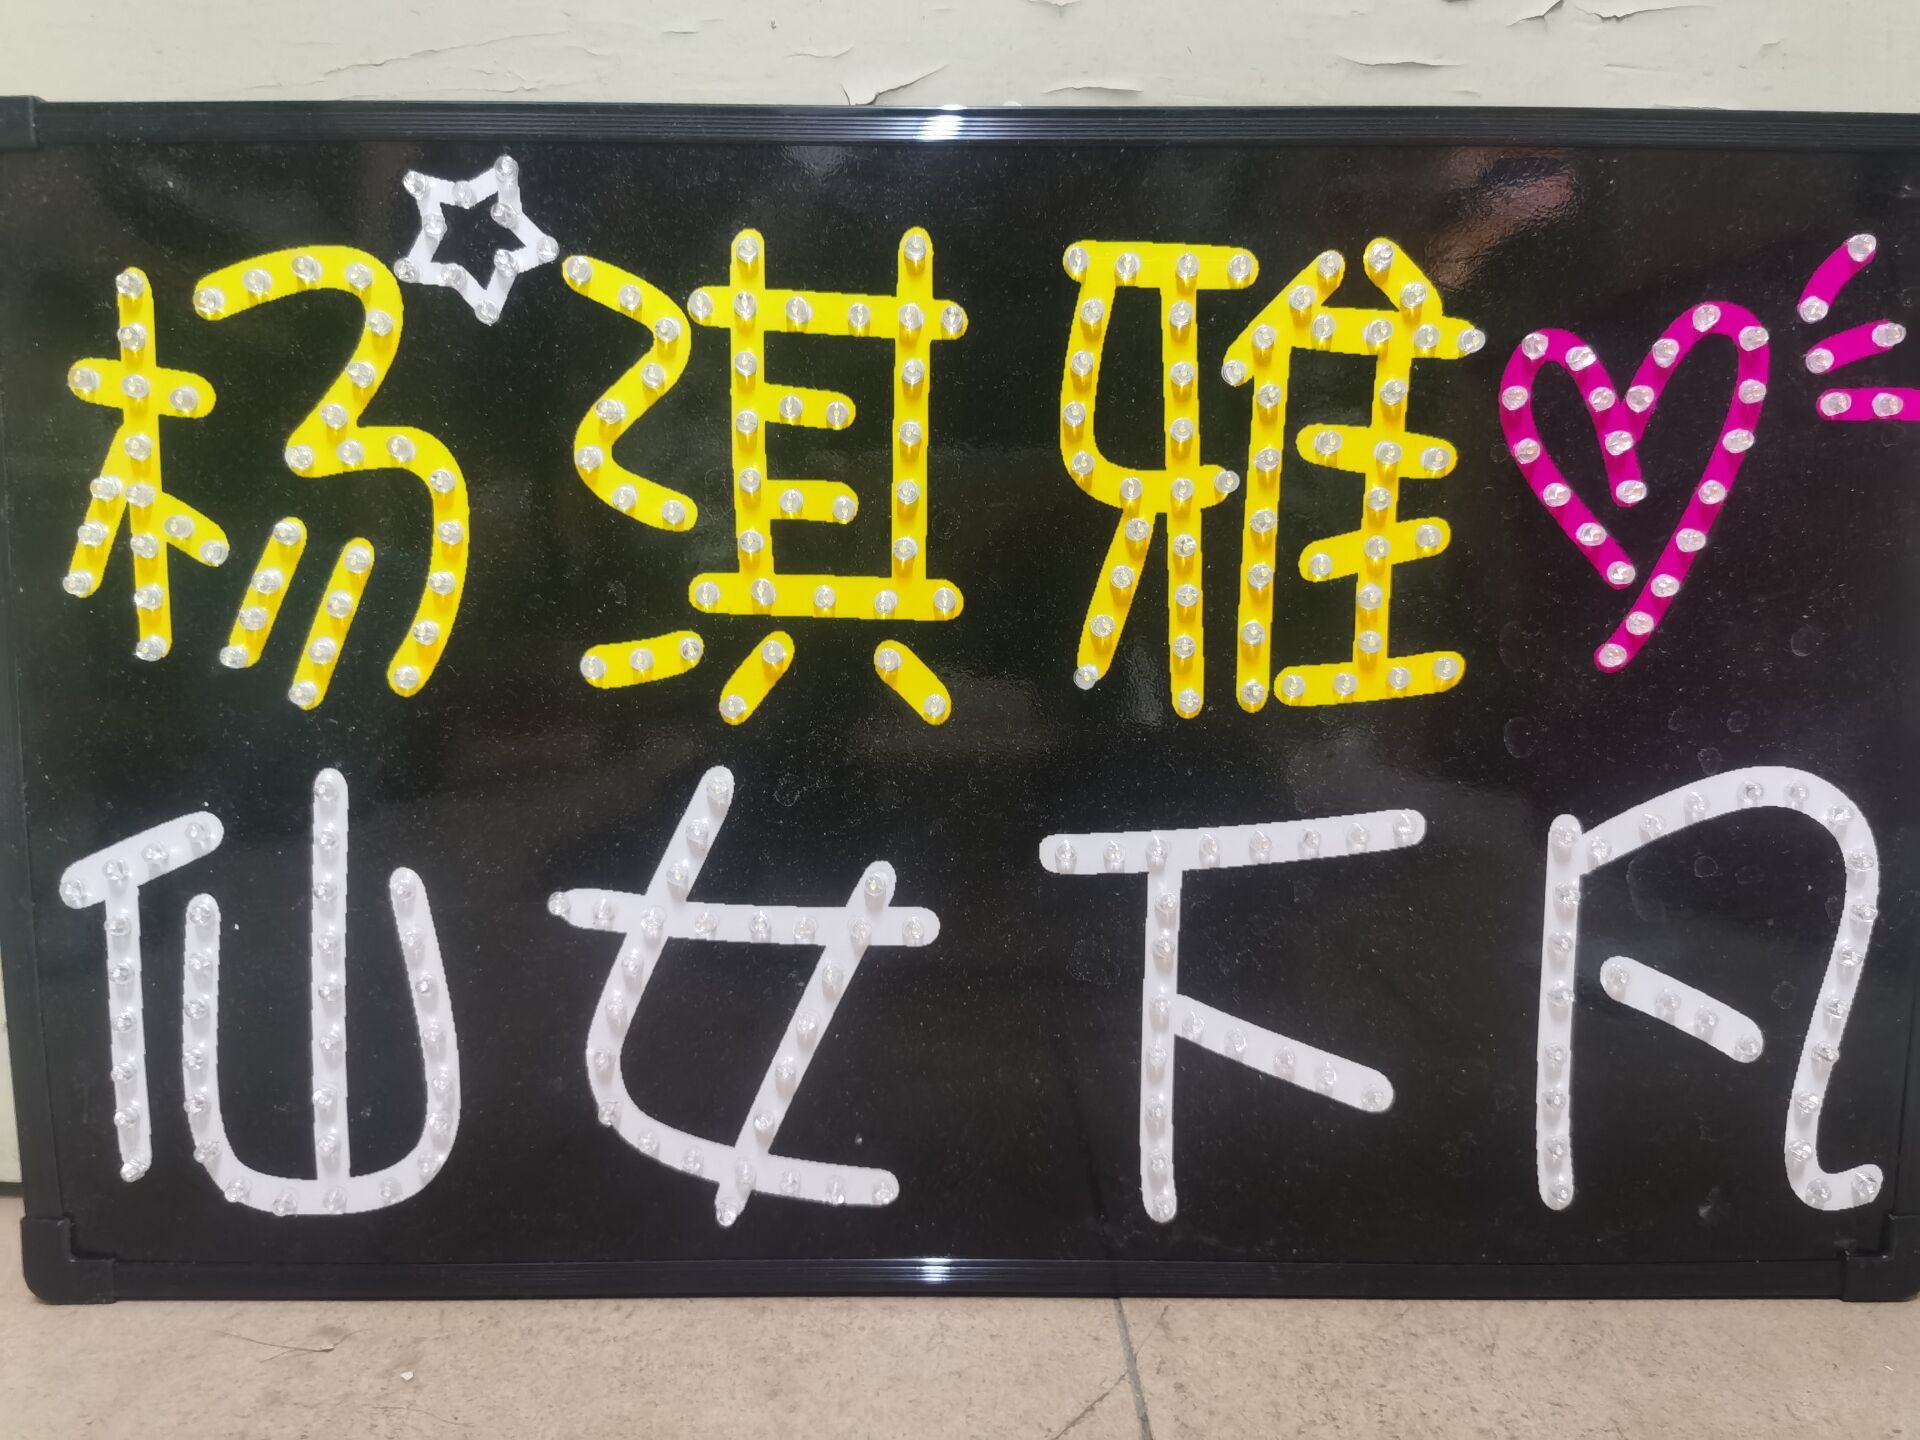 杨淇雅
仙女下凡